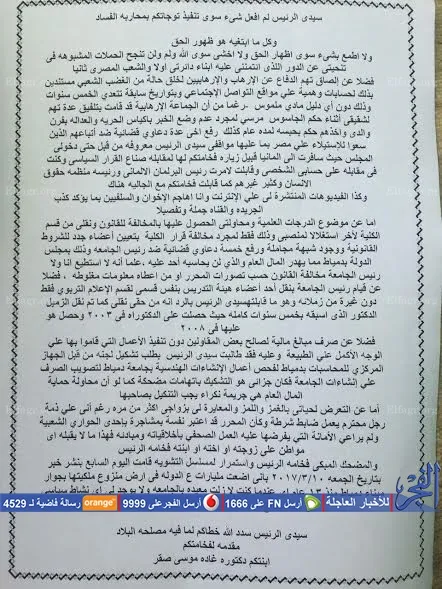 سيدى الرئيس لم افعل شىء سوى تنفيذ توجاتكم بمحاربه الفساد
وكل ما ابتغيه هو ظهور الحق
ولا اطمع بشىء سوى اظهار الحق ولا اخشى سوى الله ولم ولن تنجح الحملات المشبوهه فى
تنحيتى عن الدور اللذى انتمنتى عليه ابناء دائرتى أولا والشعب المصرى ثانيا
فضلا عن إلصاق تهم الدفاع عن الإرهاب والإرهابيين لخلق حالة من الغضب الشعبي مستندين
بذلك لحسابات وهمية علي مواقع التواصل الإجتماعي وبتواريخ سابقة تتعدي الخمس سنوات
وذلك دون أي دليل مادي ملموس -رغما من أن الجماعة الإرهابية قد قامت بتلفيق عدة تهم
لشقيقي أثناء حكم الجاسوس مرسي لمجرد عدم وضع الخبر باكياس الحريه والعداله بفرن
والدى واخذهم حكم بحبسه لمده عام كذلك رفع اخى عدة دعاوي قضائية ضد أتباعهم الذين
سعوا للإستيلاء علي مصر بما عليها مواقفى سيدى الرئيس معروفه من قبل حتى دخولى
المجلس حيث سافرت الى المانيا قبيل زياره فخامتكم لها لمقابله صناع القرار السياسى وكنت
فى مقابله على حسابى الشخصى وقابلت لامرت رئيس البرلمان الالمانى ورئيسه منظمه حقوق
الانسان وكثير غيرهم كما قابلت فخامتكم مع الجاليه هناك
وكذا الفيديوهات المنتشرة لى علي الإنترنت وانا اهاجم الإخوان والسلفيين بما يؤكد كذب
الجريده والقناه جملة وتفصيلا
اما عن موضوع الدرجات العلمية ومحاولتي الحصول عليها بالمخالفة للقانون ونقلي من قسم
الكلية لآخر استغلالا لمنصبي وذلك فقط لمجرد مخالفة قرار الكلية بتعيين أعضاء جدد للشروط
القانونية ووجود شبهة مجاملة ورفع خمسة دعاوي قضائية ضد رئيس الجامعه وذلك بمجلس
الدولة بدمياط مما يهدر المال العام والذي لن يحاسبه أحد عليه ،علما أنه لا استطيع انا ولا
رئيس الجامعة مخالفة القانون حسب تصورات المحرر او من أعطاه معلومات مغلوطه ، فضلا
عن قيام رئيس الجامعة بنقل أحد أعضاء هيئة التدريس بنفس قسمي لقسم الإعلام التربوي فقط
دون غيرة من زملائه وهو ما قابلتهسيدى الرئيس بالرد انه من حقى نقلى كما تم نقل الزميل
الدكتور الذى اسبقه بخمس سنوات كامله حيث حصلت على الدكتوراه فى ٢٠٠٣ وحصل هو
عليها فى ٢٠٠٨
فضلا عن صرف مبالغ مالية لصالح بعض المقاولين دون تنفيذ الأعمال التي قاموا بها علي
الوجه الأكمل علي الطبيعة وعليه فقد طالبت سيدى الرئيس بطلب تشكيل لجنه من قبل الجهاز
المركزي للمحاسبات بدمياط لفحص أعمال الإنشاءات الهندسية بجامعة دمياط لتصويب الصرف
علي إنشاءات الجامعة فكان جزائى هو التشكيك باتهامات مضحكة كما لو أن محاولة حماية
المال العام هي جريمة نكراء يجب التنكيل بصاحبها
أما عن التعرض لحياتى بالغمز واللمز والمعايرة لي بزواجى اكثر من مره رغم أني علي ذمة
رجل محترم يعمل ضابط شرطة وكان المحرر قد اعتبر نفسه بمشاجرة بإحدى الحواري الشعبية
ولم يراعي الأمانة التي يفرضها عليه العمل الصحفي بأخلاقياته ومبادئه فهذا ما لا يقبله اى
مواطن على زوجته او اخته او ابنته فخامه الرئيس
والمضحك المبكى فخامه الرئيس واستمرار لمسلسل التشويه قامت اليوم السابع بنشر خبر
بتاريخ الجمعه ٢٠١٧/٣/١٠ بأنى اضعت مليارات ع الدوله فى ارض منزوع ملكيتها بجوار
الفجر للأخبار العاجلة أرسل FN على 1666 أرسل الفجر على 9999 orange رسالة فاضية لـ 4529
سيدى الرئيس سدد الله خطاكم لما فيه مصلحه البلاد
مقدمه لفخامتكم
ابنتكم دكتوره غاده موسى صقر